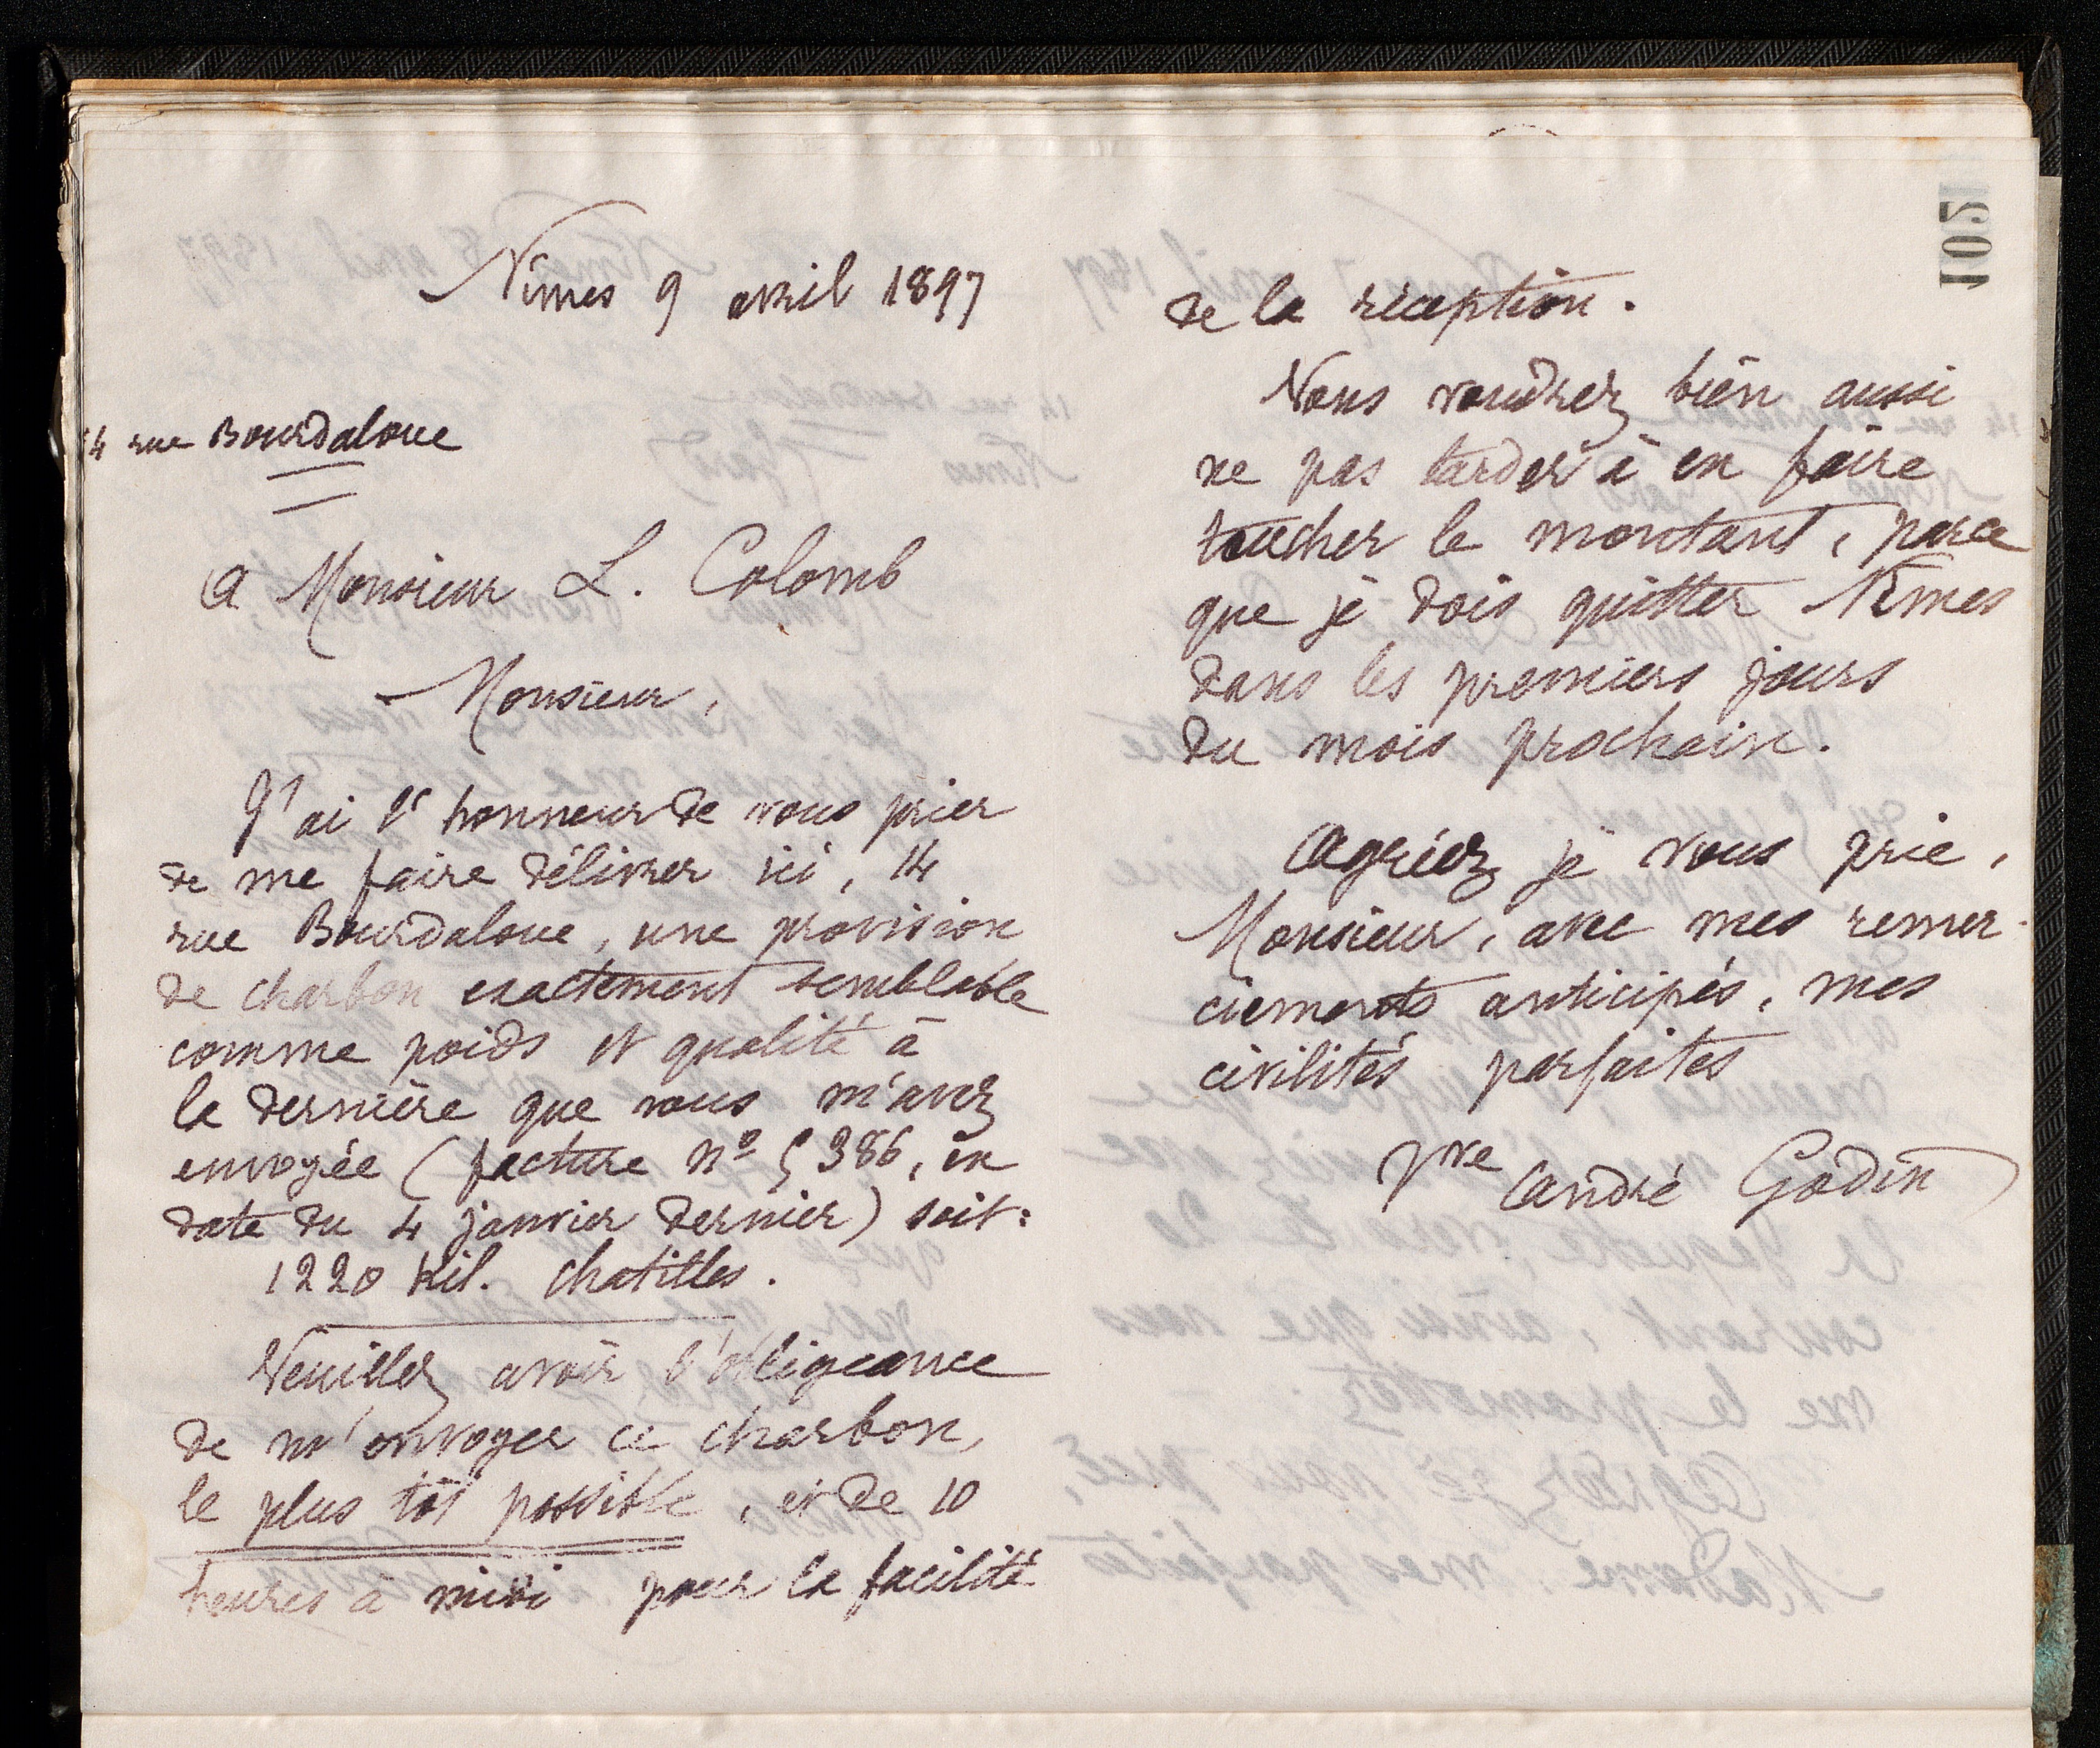 Nîmes 9 avril 1897
14 rue Bourdaloue
A Monsieur L. Colomb
Monsieur,
J'ai l'honneur de vous prier
de me faire délivrer ici, 14
rue Bourdaloue, une provision
de charbon exactement semblable
comme poids et qualité à
la dernière que vous m'avez
envoyée (facture nº 5386, en
date du 4 janvier dernier) soit:
1220 kil. chatilles.
Veuillez avoir l'obligeance
de m'envoyer ce charbon,
le plus tôt possible, et de 10
heures à midi pour la facilité
105
de la réception.
Vous voudrez bien aussi
ne pas tarder à en faire
toucher le montant, parce
que je dois quitter Nîmes
dans les premiers jours
du mois prochain.
Agréez je vous prie,
Monsieur, avec mes remer-
ciements anticipés, mes
civilités parfaites
Vve André Godin